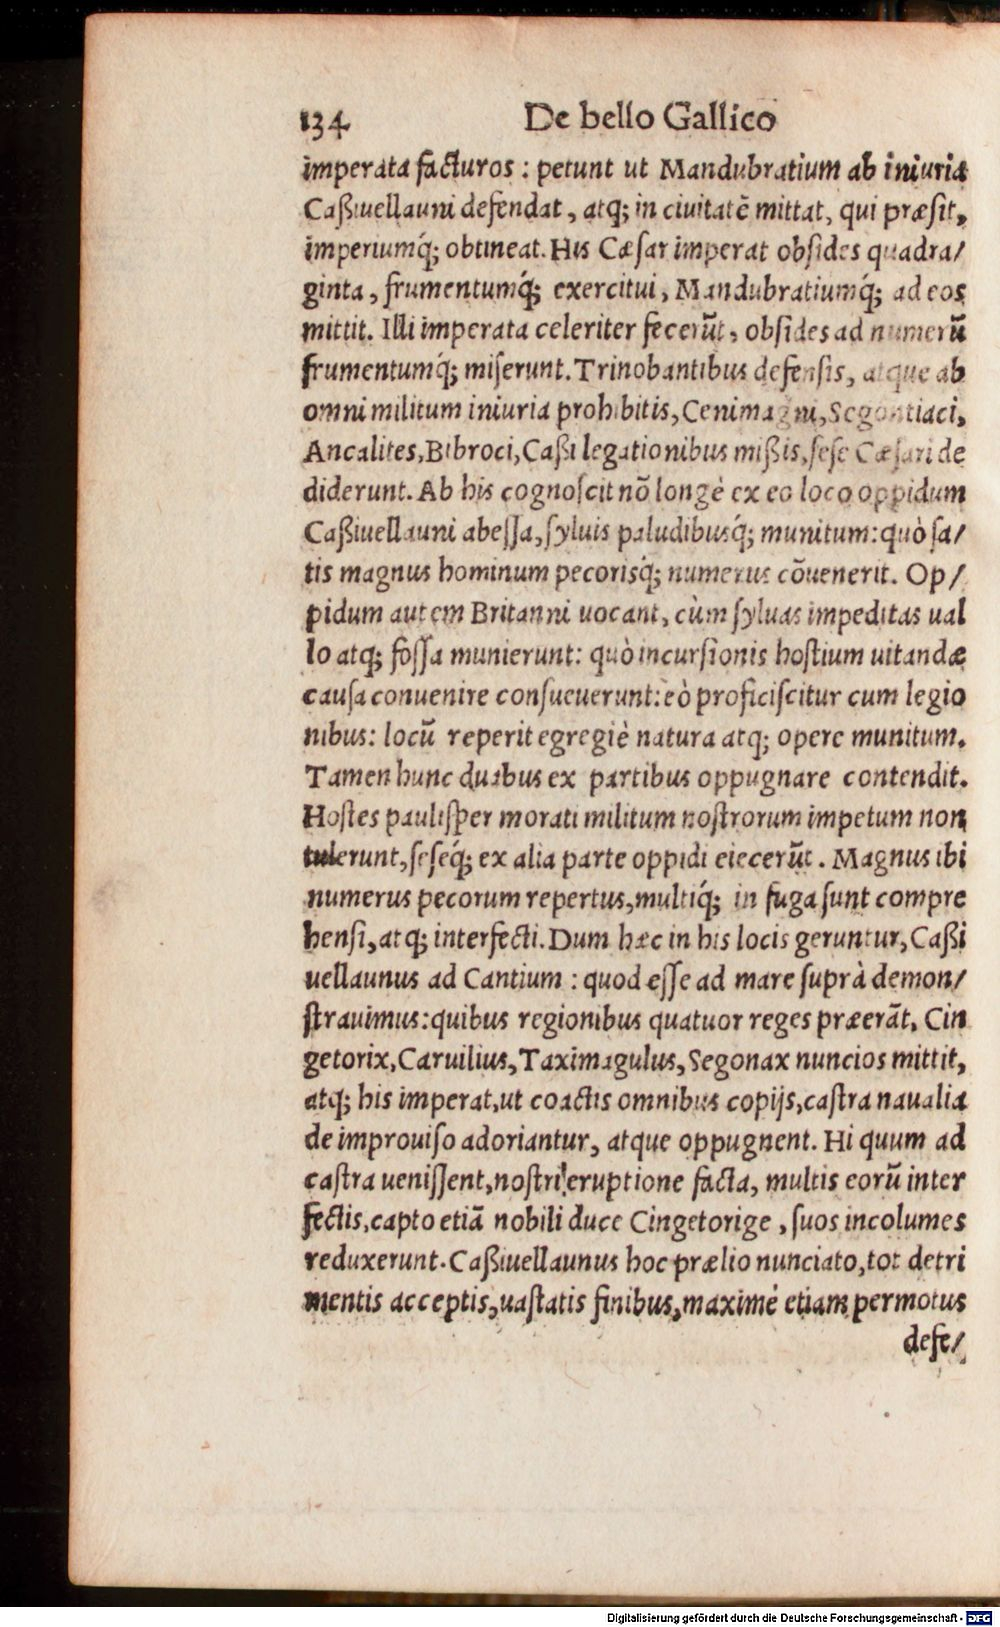 134 De bello Gallico
imperata facturos : petunt ut Mandubratium ab iniuria
Caßiuellauni defendat, atq; in ciuitatē mittat, qui præsit,
imperiumq́; obtineat. His Cæsar imperat obsides quadra/
ginta, frumentumq́; exercitui, Mandubratiumq́; ad eos
mittit. Illi imperata celeriter fecerūt, obsides ad numerū
frumentumq́; miserunt. Trinobantibus defensis, atque ab
omni militum iniuria prohibitis, Cenimagni, Segontiaci,
Ancalites, Bibroci, Caßi legationibus mißis, sese Cæsari de
diderunt. Ab his cognoscit nō longè ex eo loco oppidum
Caßiuellauni abessa, syluis paludibusq́; munitum: quò sa/
tis magnus hominum pecorisq́; numerus cōuenerit. Op/
pidum autem Britanni uocant, cùm syluas impeditas ual
lo atq; fossa munierunt: quò incursionis hostium uitandæ
causa conuenire consueuerunt: eò proficiscitur cum legio
nibus: locū reperit egregiè natura atq; opere munitum.
Tamen hunc duabus ex partibus oppugnare contendit.
Hostes paulisper morati militum nostrorum impetum non
tulerunt, seseq́; ex alia parte oppidi eiecerūt. Magnus ibi
numerus pecorum repertus, multiq́; in fuga sunt compre
hensi, atq; interfecti. Dum hæc in his locis geruntur, Caßi
uellaunus ad Cantium : quod esse ad mare suprà demon/
strauimus: quibus regionibus quatuor reges præerāt, Cin
getorix, Caruilius, Taximagulus, Segonax nuncios mittit,
atq; his imperat, ut coactis omnibus copijs, castra naualia
de improuiso adoriantur, atque oppugnent. Hi quum ad
castra uenissent, nostri eruptione facta, multis eorū inter
fectis, capto etiā nobili duce Cingetorige, suos incolumes
reduxerunt. Caßiuellaunus hoc prælio nunciato, tot detri
mentis acceptis, uastatis finibus, maximè etiam permotus
defe/
Digitalisierung gefördert durch die Deutsche Forschungsgemeinschaft - DFG